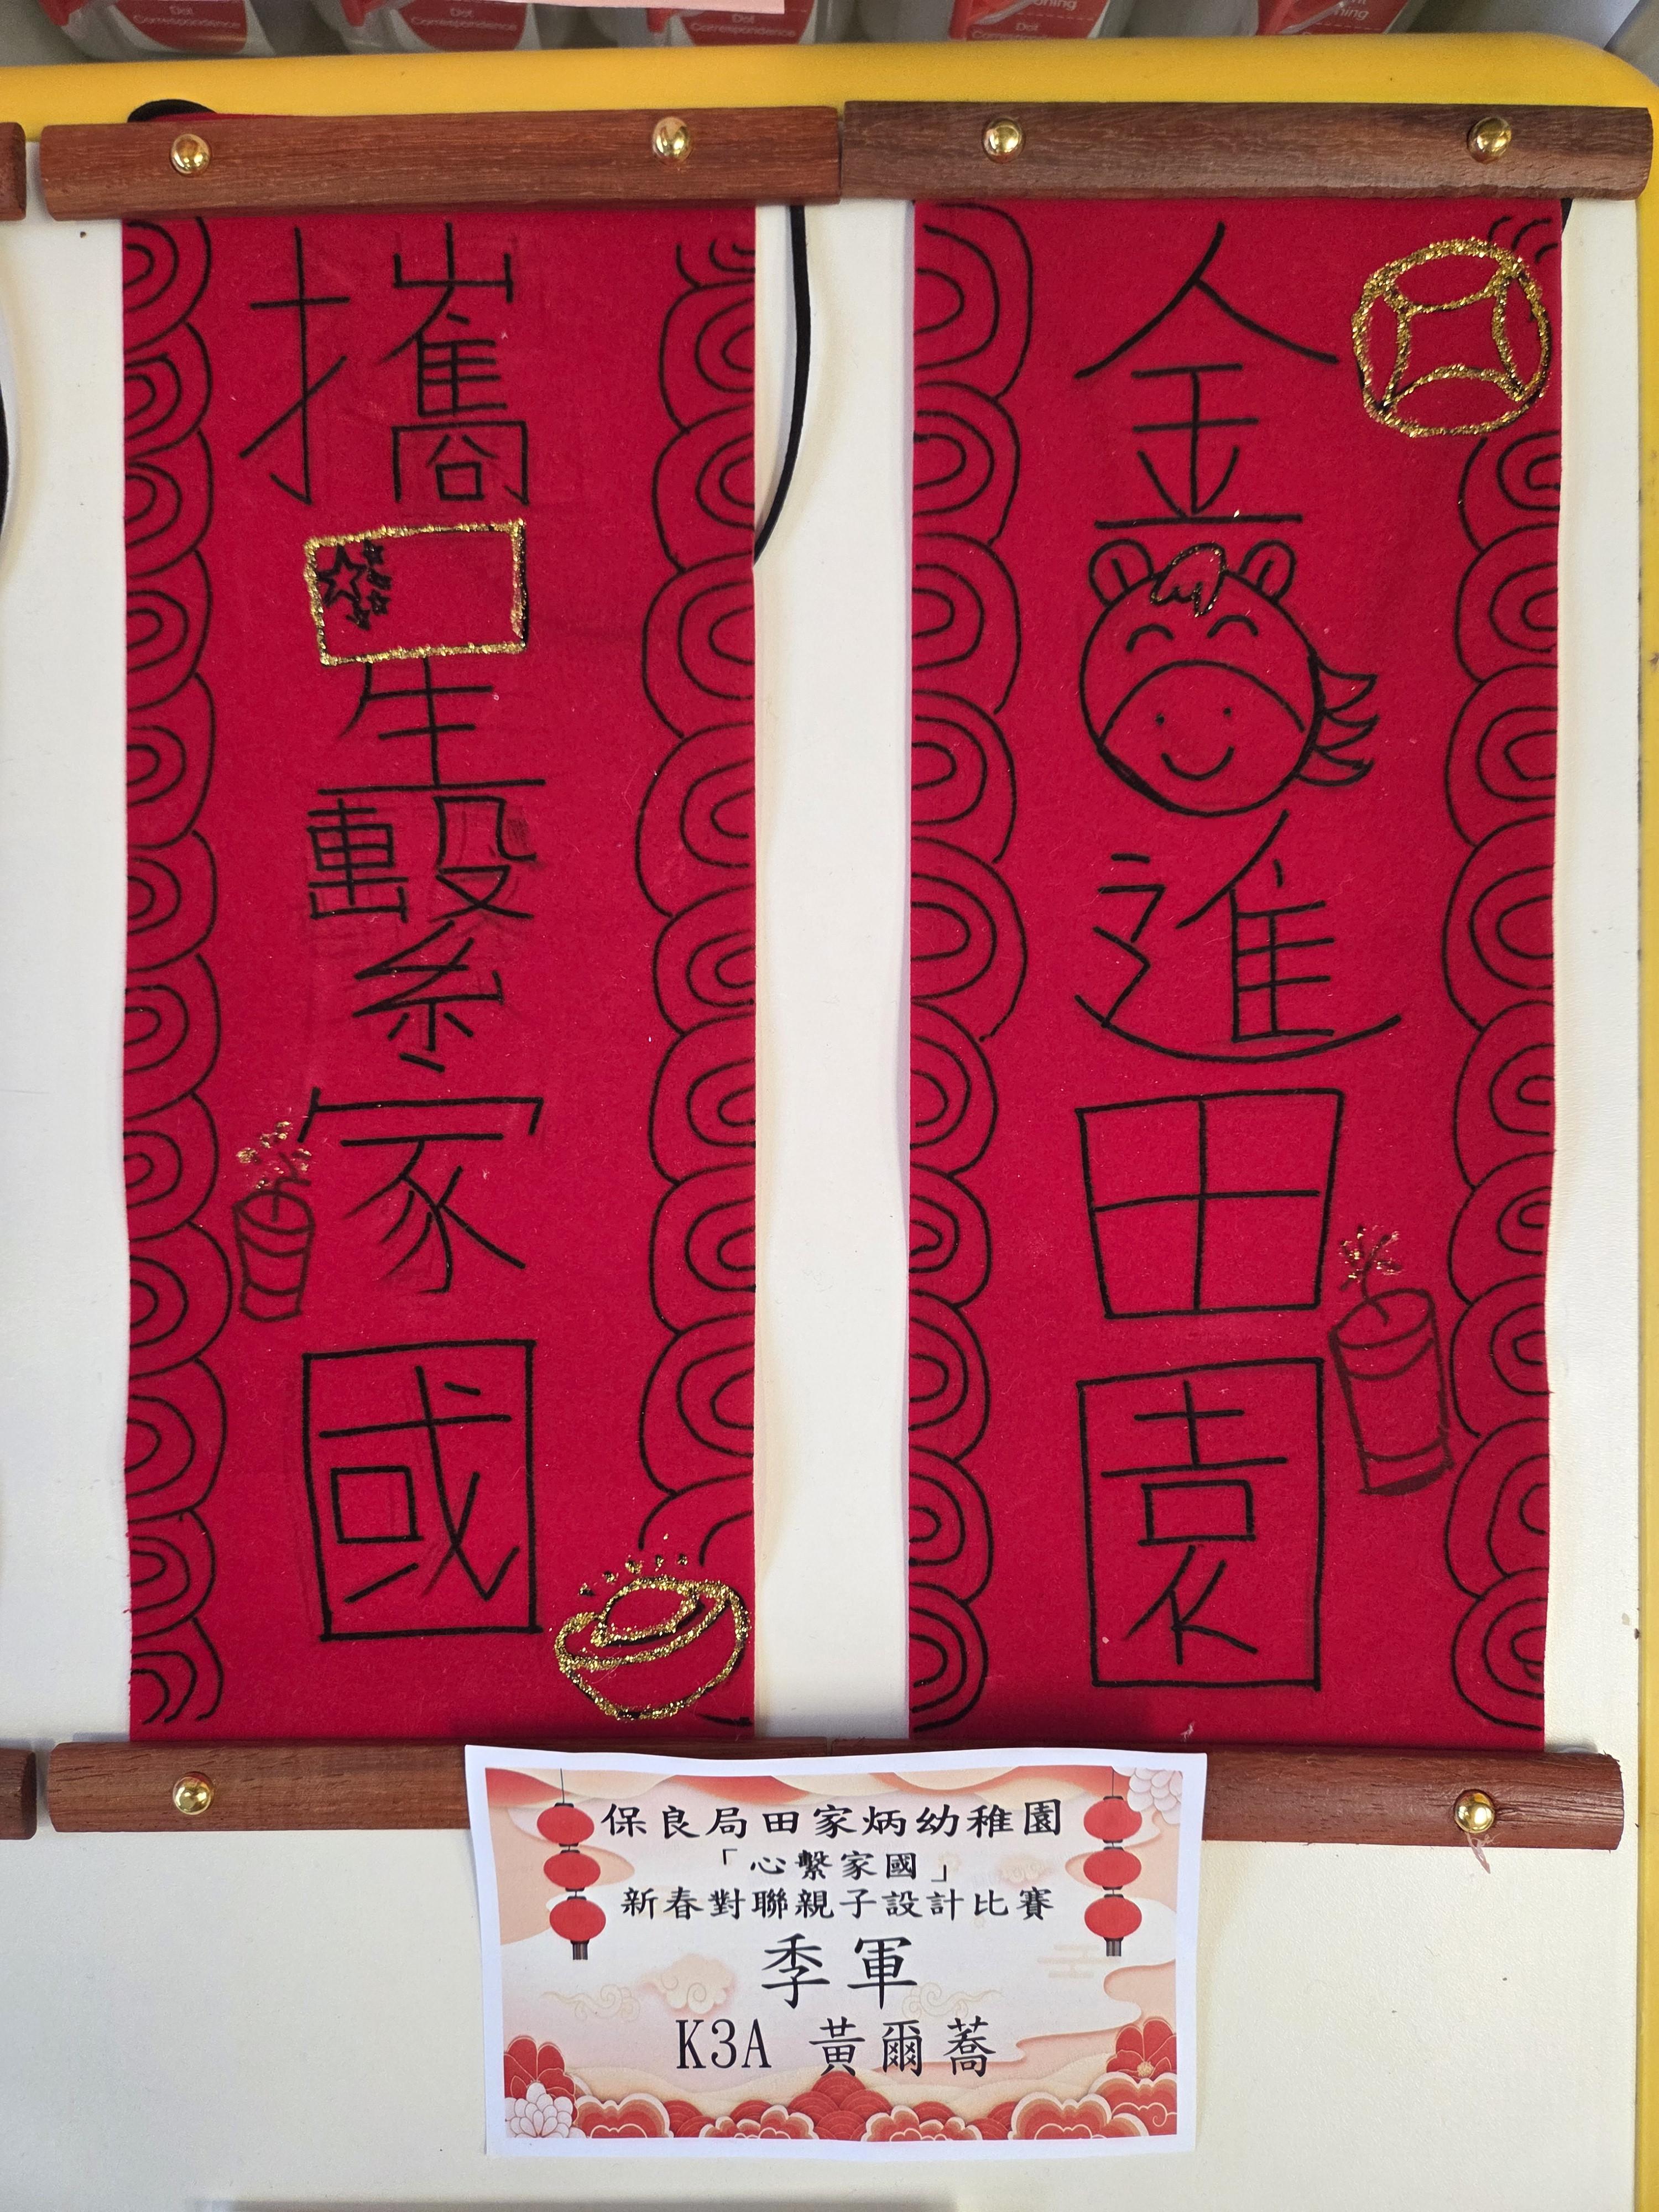 Dot
Correspondence
Dot
Correspondence
Dot
Correspondence
Dot
金進田園
攜星繫家國
保良局田家炳幼稚園
「心繫家國」
新春對聯親子設計比賽
季軍
K3A 黃爾蕎